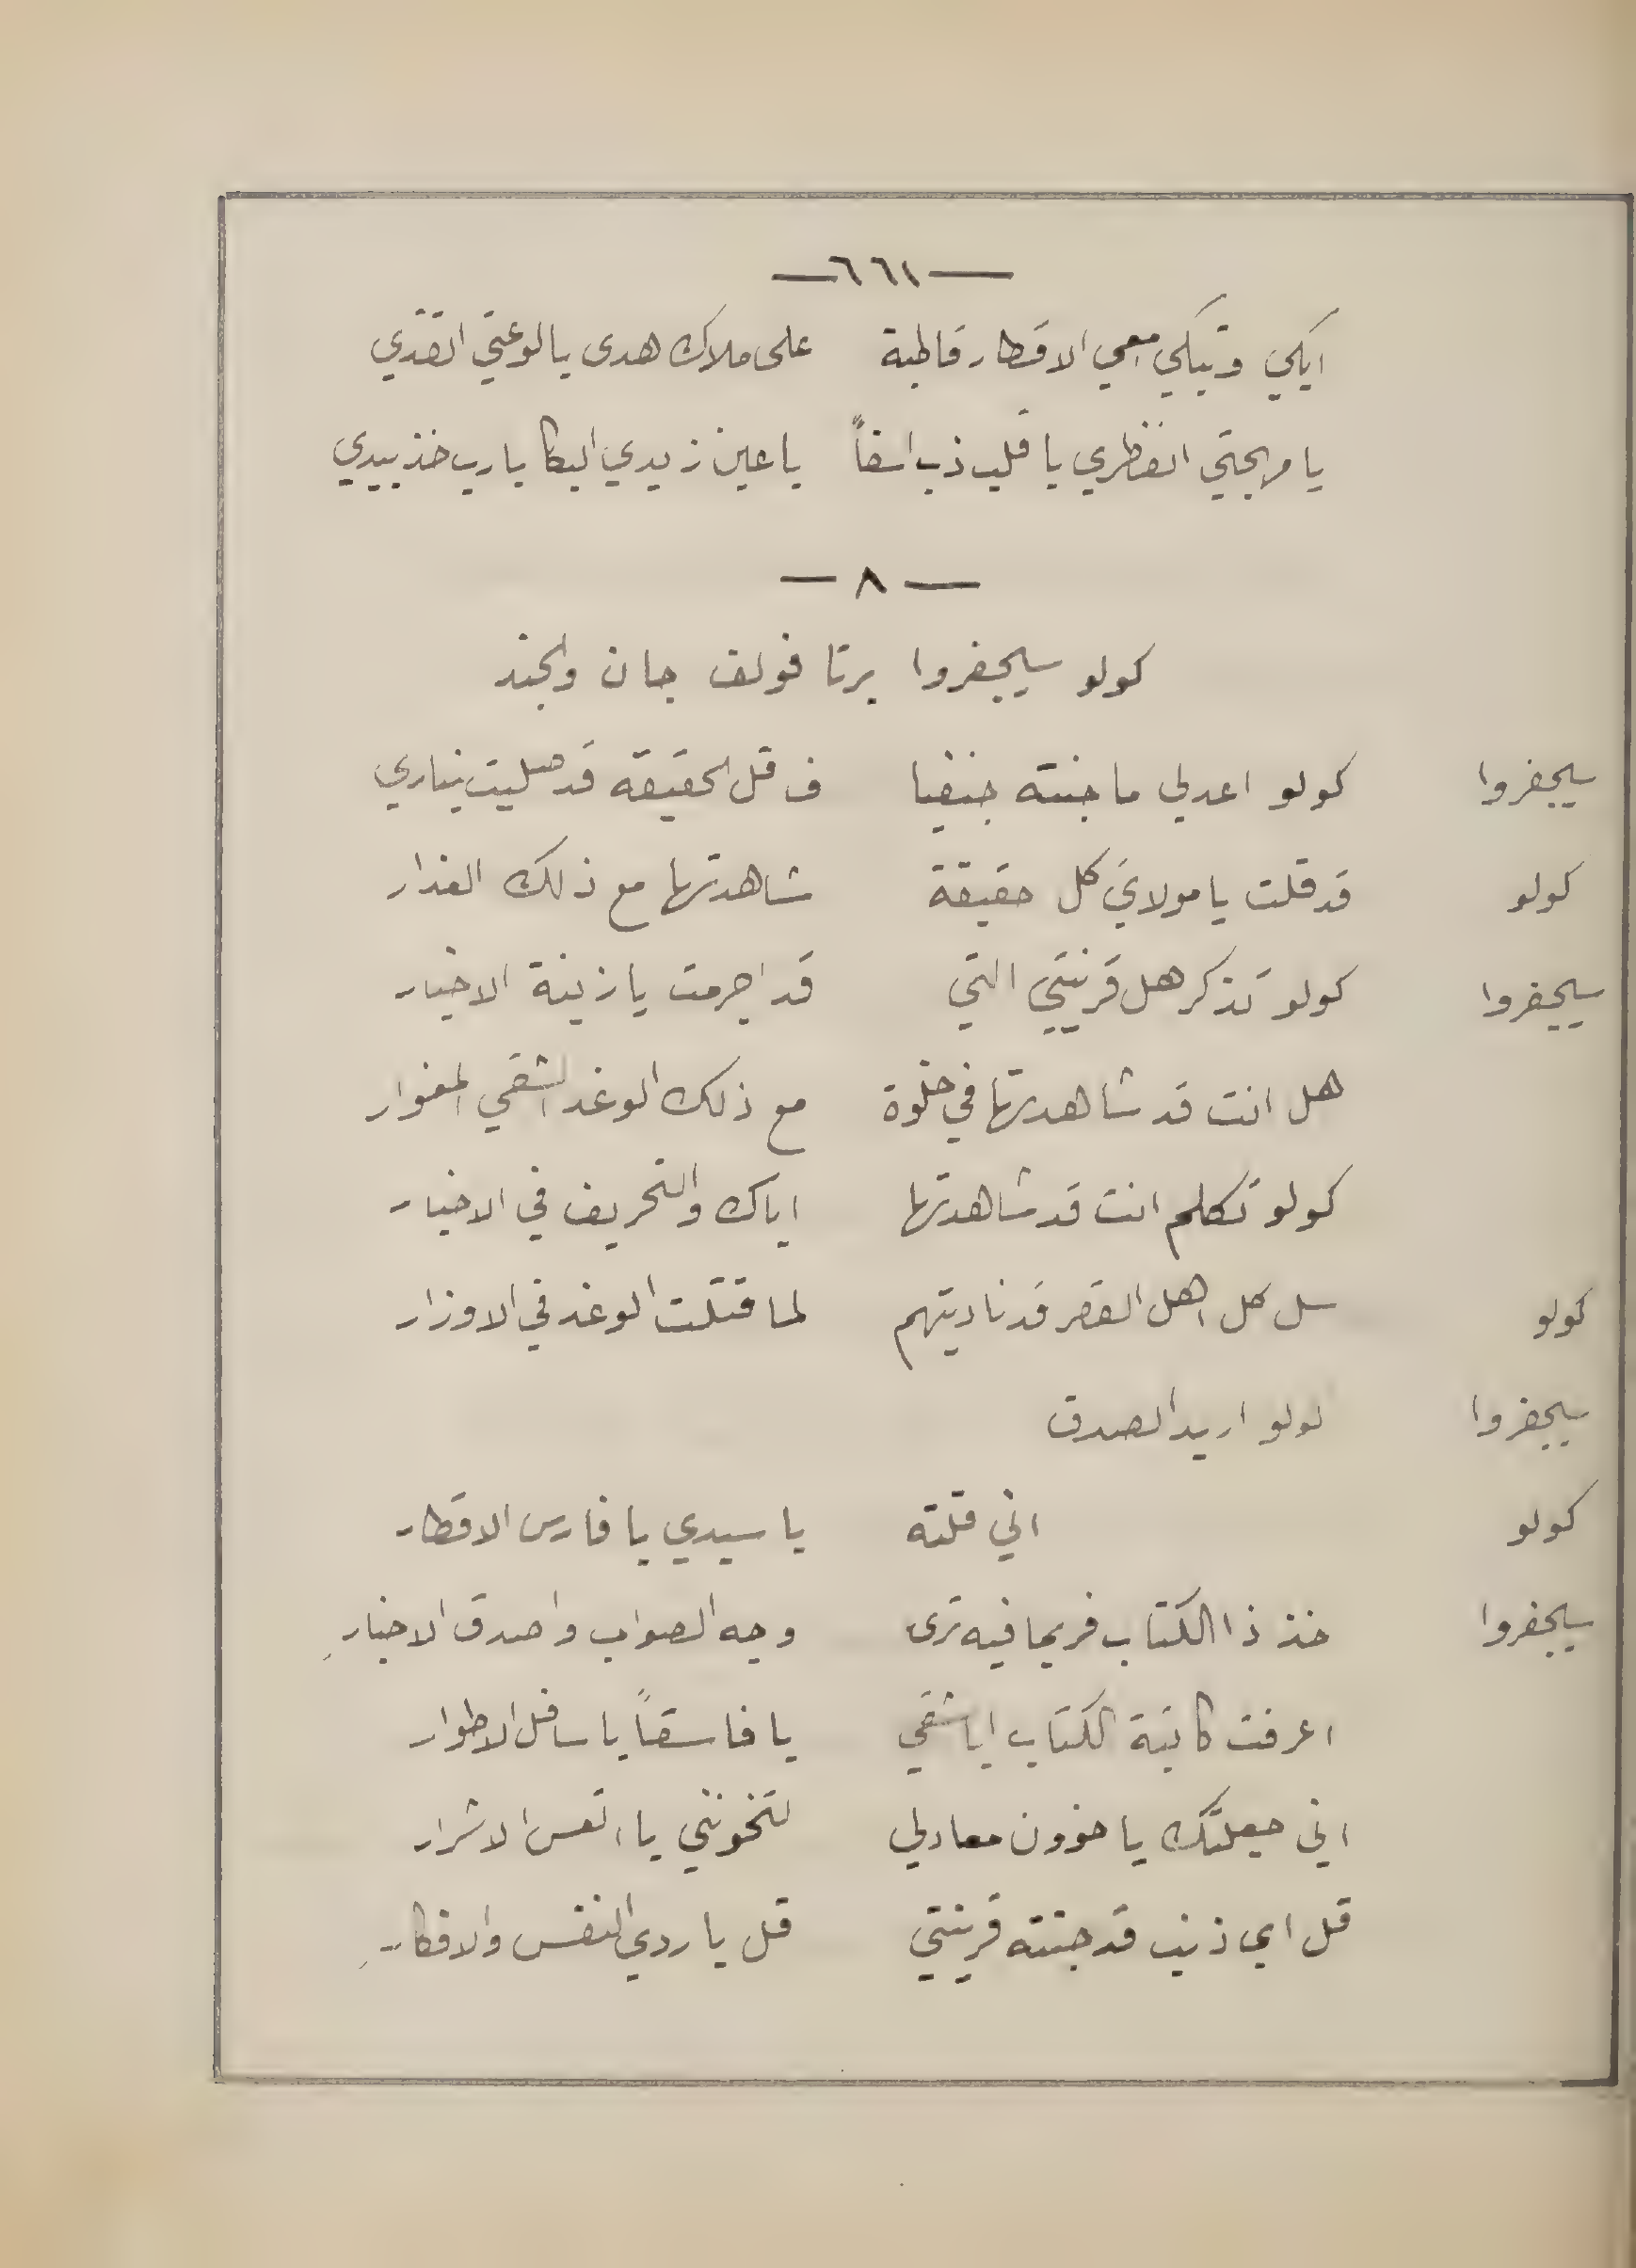 — ٦٦١ —
ابكي وتبكي معي الاقطار قاطبة على ملاك هدى يا لوعتي اتقدي
يا مهجتي انفطري يا قلب ذب اسفاً يا عين زيدي البكا يا رب خذ بيدي
— ٨ —
كولو سيجفروا برتا فولف جان والجند
سيجفروا كولو اعد لي ما جنته جنفيا قل الحقيقة قد صليت بناري
كولو قد قلت يا مولايَ كل حقيقة شاهدتها مع ذلك الغدار
سيجفروا كولو تذكر هل قرينتي التي قد اجرمت يا زينة الاخيار
هل انت قد شاهدتها في خلوة مع ذلك الوغد الشقي المغوار
كولو تكلم انت قد شاهدتها اياك والتحريف في الاخبار
كولو سل كل اهل القصر قد ناديتهم لما قتلت الوغد في الاوزار
سيجفروا لولو اريد الصدق
كولو اني قلته يا سيدي يا فارس الاقطار
سيجفروا خذ ذا الكتاب فربما فيه ترى وجه الصواب واصدق الاخبار
اعرفت كاتبة الكتاب ايا شقي يا فاسقاً يا سافل الاطوار
اني جعلتك يا خوون معادلي لتخونني يا اتعس الاشرار
قل اي ذنب قد جنته قرينتي قل يا ردي النفس والافكار